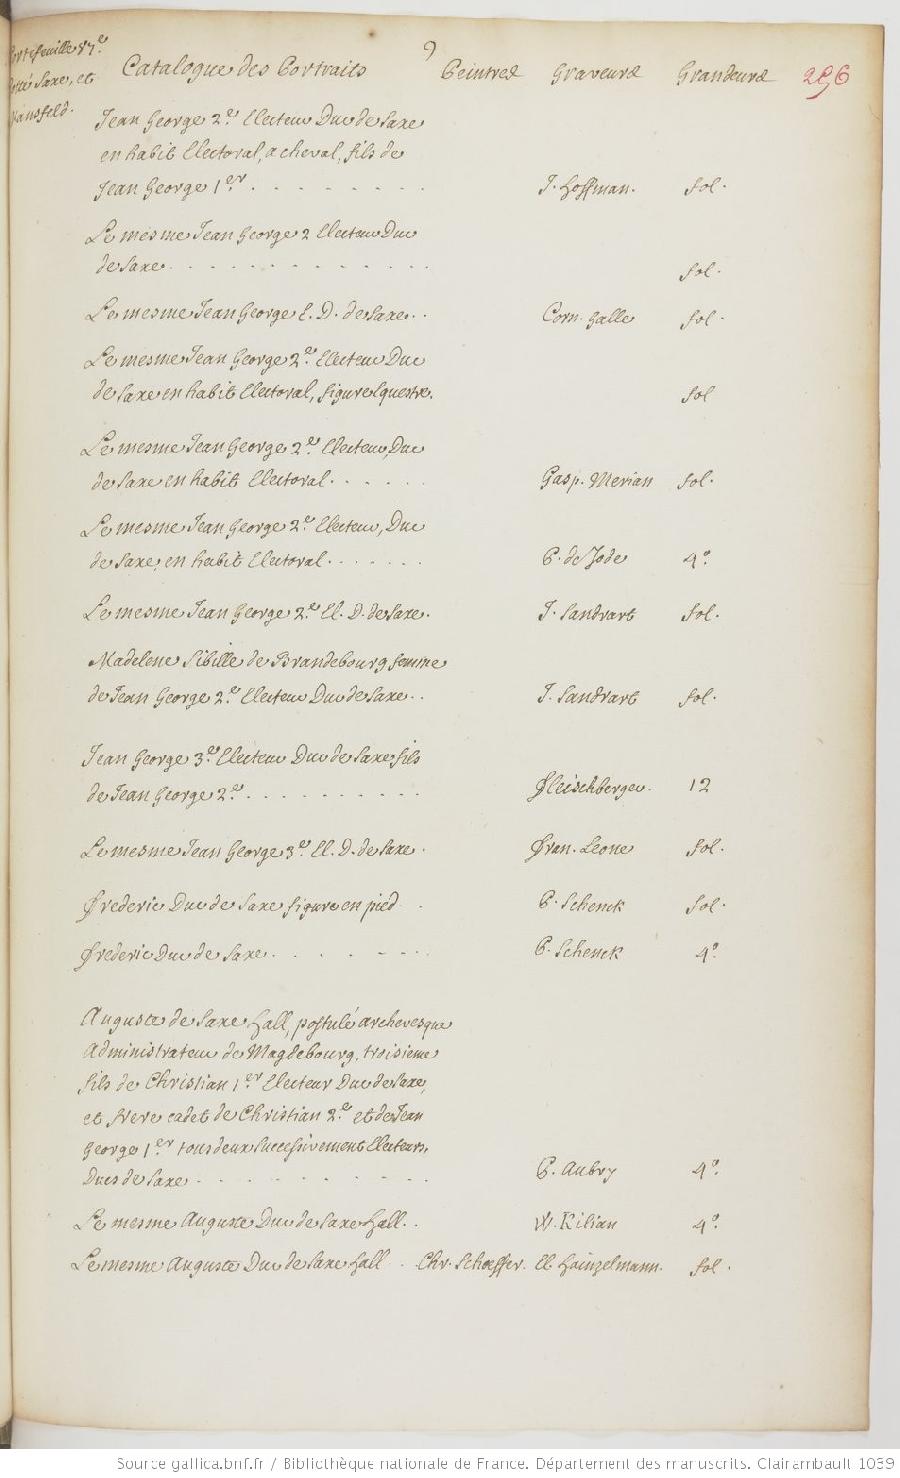 Portefeuille 87.e
Saxe, et
Mansfeld.
9
Catalogue des Portraits Peintres Graveurs Grandeurs 296
Jean George 2.e Electeur Duc de Saxe
en habit Electoral, a cheval, fils de
Jean George 1.er . . . . . . . . J. Hoffman. fol.
Le mesme Jean George 2 Electeur Duc
de Saxe . . . . . . . . . . . . fol.
Le mesme Jean George E. D. de Saxe . . Corn. Galle fol.
Le mesme Jean George 2.e Electeur Duc
de Saxe en habit Electoral, figure Equestre. fol
Le mesme Jean George 2.e Electeur, Duc
de Saxe en habit Electoral . . . . . Gasp. Merian fol.
Le mesme Jean George 2.e Electeur, Duc
de Saxe, en habit Electoral . . . . . . P. de Jode 4.o
Le mesme Jean George 2.e El. D. de Saxe. J. Sandrart fol.
Madelene Sibille de Brandebourg femme
de Jean George 2.e Electeur Duc de Saxe . . J. Sandrart fol.
Jean George 3.e Electeur Duc de Saxe fils
de Jean George 2.e . . . . . . . . . Fleischberger. 12
Le mesme Jean George 3.e El. D. de Saxe . Fran. Leone fol.
Frederic Duc de Saxe figure en pied . P. Schenck fol.
Frederic Duc de Saxe . . . . . . P. Schenck 4.o
Auguste de Saxe Hall, postulé archevesque
Administrateur de Magdebourg, troisieme
fils de Christian 1.er Electeur Duc de Saxe,
et frere cadet de Christian 2.e et de Jean
George 1.er tous deux successivement Electeurs,
Ducs de Saxe . . . . . . . . . . P. Aubry 4.o
Le mesme Auguste Duc de Saxe Hall . . W. Kilian 4.o
Le mesme Auguste Duc de Saxe Hall . Chr. Schæffer. El Hainzelmann. fol.
Source gallica.bnf.fr / Bibliothèque nationale de France. Département des manuscrits. Clairambault 1039